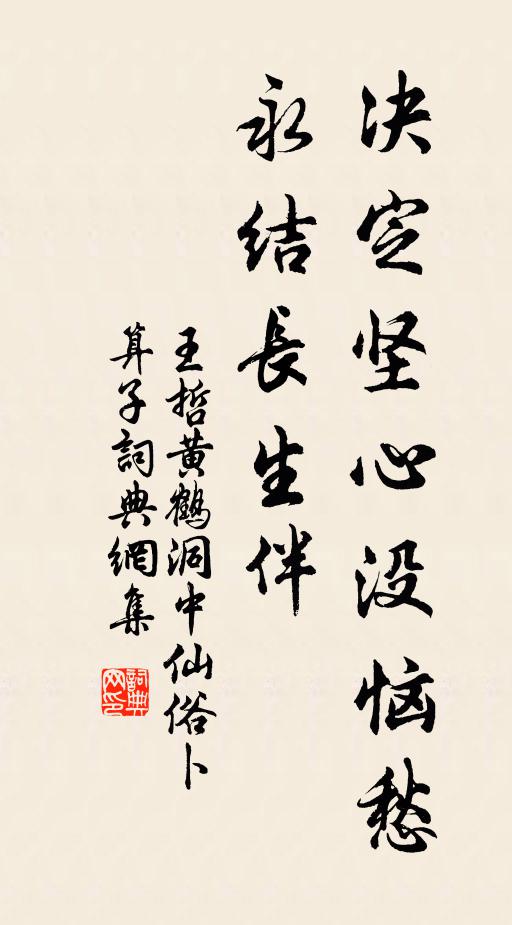 决定坚心没恼愁
永结長生伴
王哲黄鶴洞中仙俗卜
算子詞典網集
詞典网印